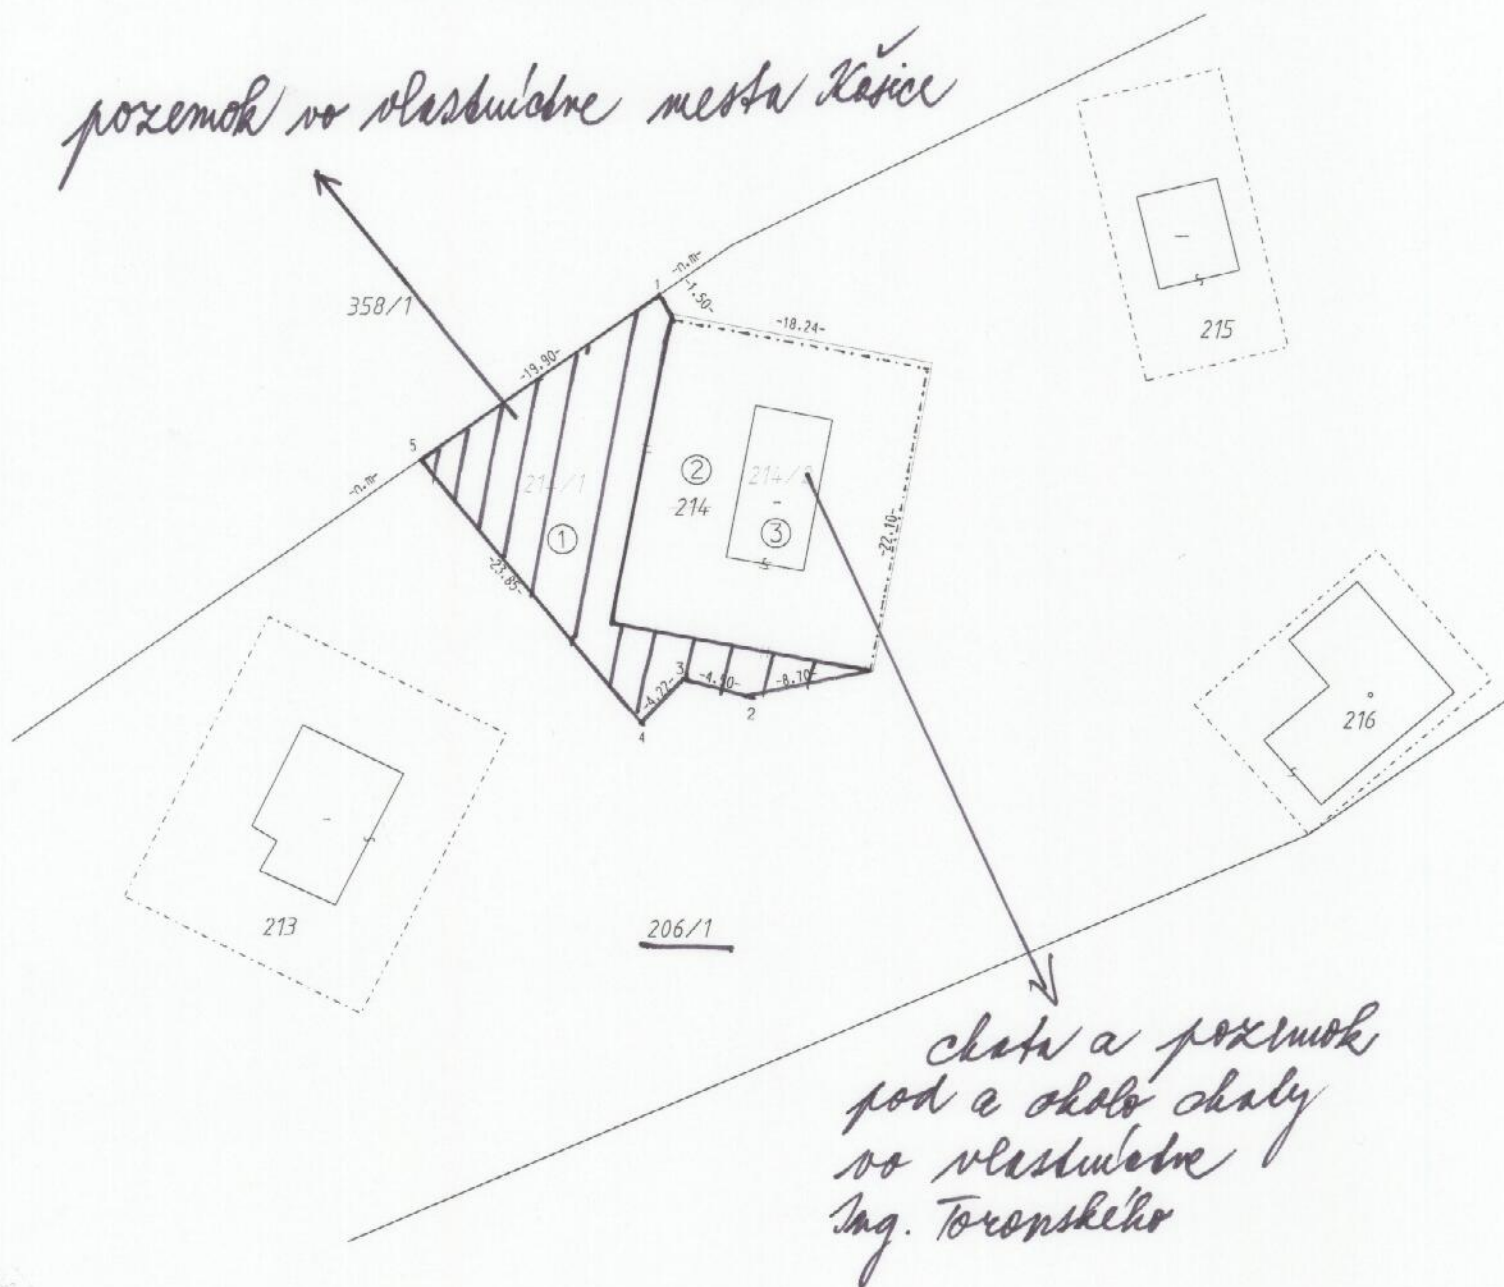 pozemok vo vlastníctve mesta Košice
-n.m-
1
-1.50-
358/1
-18.24-
215
-19.90-
5
-n.m-
214/1
2
214/2
214
3
1
-22.10-
-23.85-
3
-4.90-
-8.70-
-4.27-
2
4
216
213
206/1
chata a pozemok
pod a okolo chaty
vo vlastníctve
Ing. Toronského